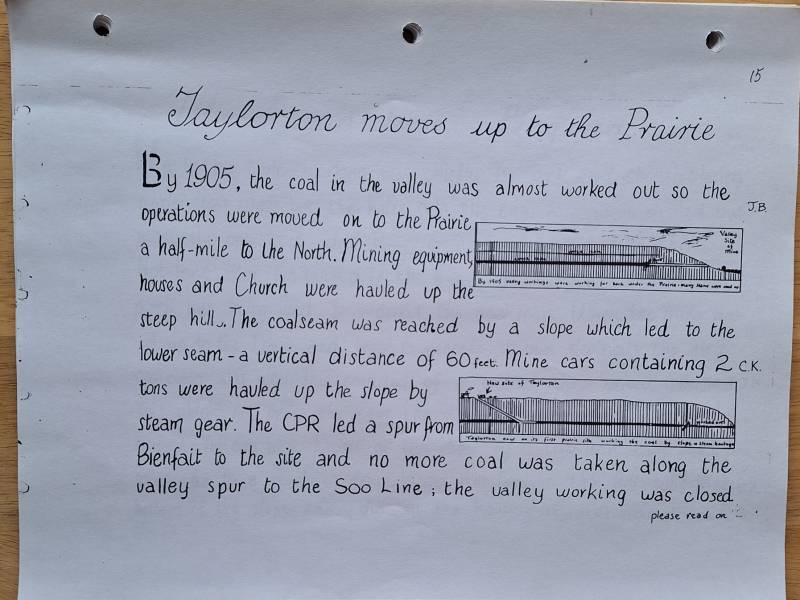 15
Taylorton moves up to the Prairie
By 1905, the coal in the valley was almost worked out so the
J.B.
operations were moved on to the Prairie
a half-mile to the North. Mining equipment,
houses and Church were hauled up the
Valley
Site
of
Mine
By 1905 valley workings were working far back under the Prairie - many
steep hill. The coalseam was reached by a slope which led to the
lower seam - a vertical distance of 60 feet. Mine cars containing 2
C.K.
tons were hauled up the slope by
steam gear. The CPR led a spur from
New site of Taylorton
Taylorton now on its first prairie site working the coal by slope & steam haulage
Bienfait to the site and no more coal was taken along the
valley spur to the Soo Line; the valley working was closed
please read on